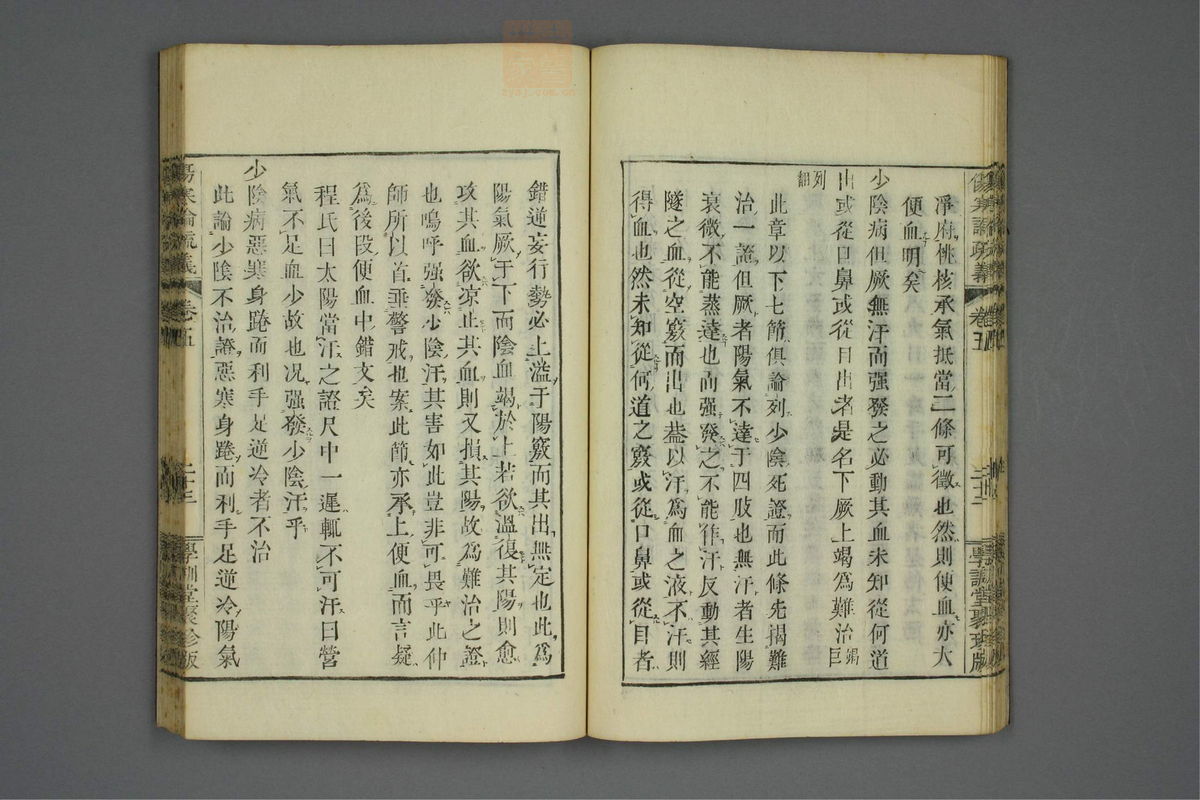 傷寒論疏義 卷五 學訓堂聚珍版
凈府桃核承氣抵當二條可徵也然則便血亦大
便血明矣
少陰病但厥無汗而强發之必動其血未知從何道
出或從口鼻或從目出者是名下厥上竭爲難治 竭巨
列翻
此章以下七節俱論列少陰死證而此條先揭難
治一證但厥者陽氣不達于四肢也無汗者生陽
衰微不能蒸達也而强發之不能作汗反動其經
隧之血從空竅而出也葢以汗爲血之液不汗則
得血也然未知從何道之竅或從口鼻或從目者
錯逆妄行勢必上溢于陽竅而其出無定也此爲
陽氣厥于下而陰血竭於上若欲溫復其陽則愈
攻其血欲凉止其血則又損其陽故爲難治之證
也嗚呼强發少陰汗其害如此豈非可畏乎此仲
師所以首垂警戒也案此節亦承上便血而言疑
爲後段便血中錯文矣
程氏曰太陽當汗之證尺中一遲輒不可汗曰營
氣不足血少故也况强發少陰汗乎
少陰病惡寒身踡而利手足逆冷者不治
此論少陰不治證惡寒身踡而利手足逆冷陽氣
傷寒論疏義 卷五 二十三 學訓堂聚珍版